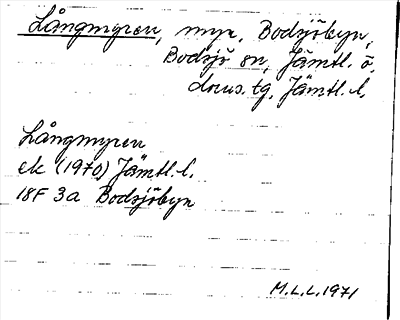 Långmyren, myr, Bodsjöbyn,
Bodsjö sn, Jämtl. ö.
doms.tg, Jämtl. l.
Långmyren
ek (1970) Jämtl. l.
18F 3a Bodsjöbyn
M.L.L. 1971